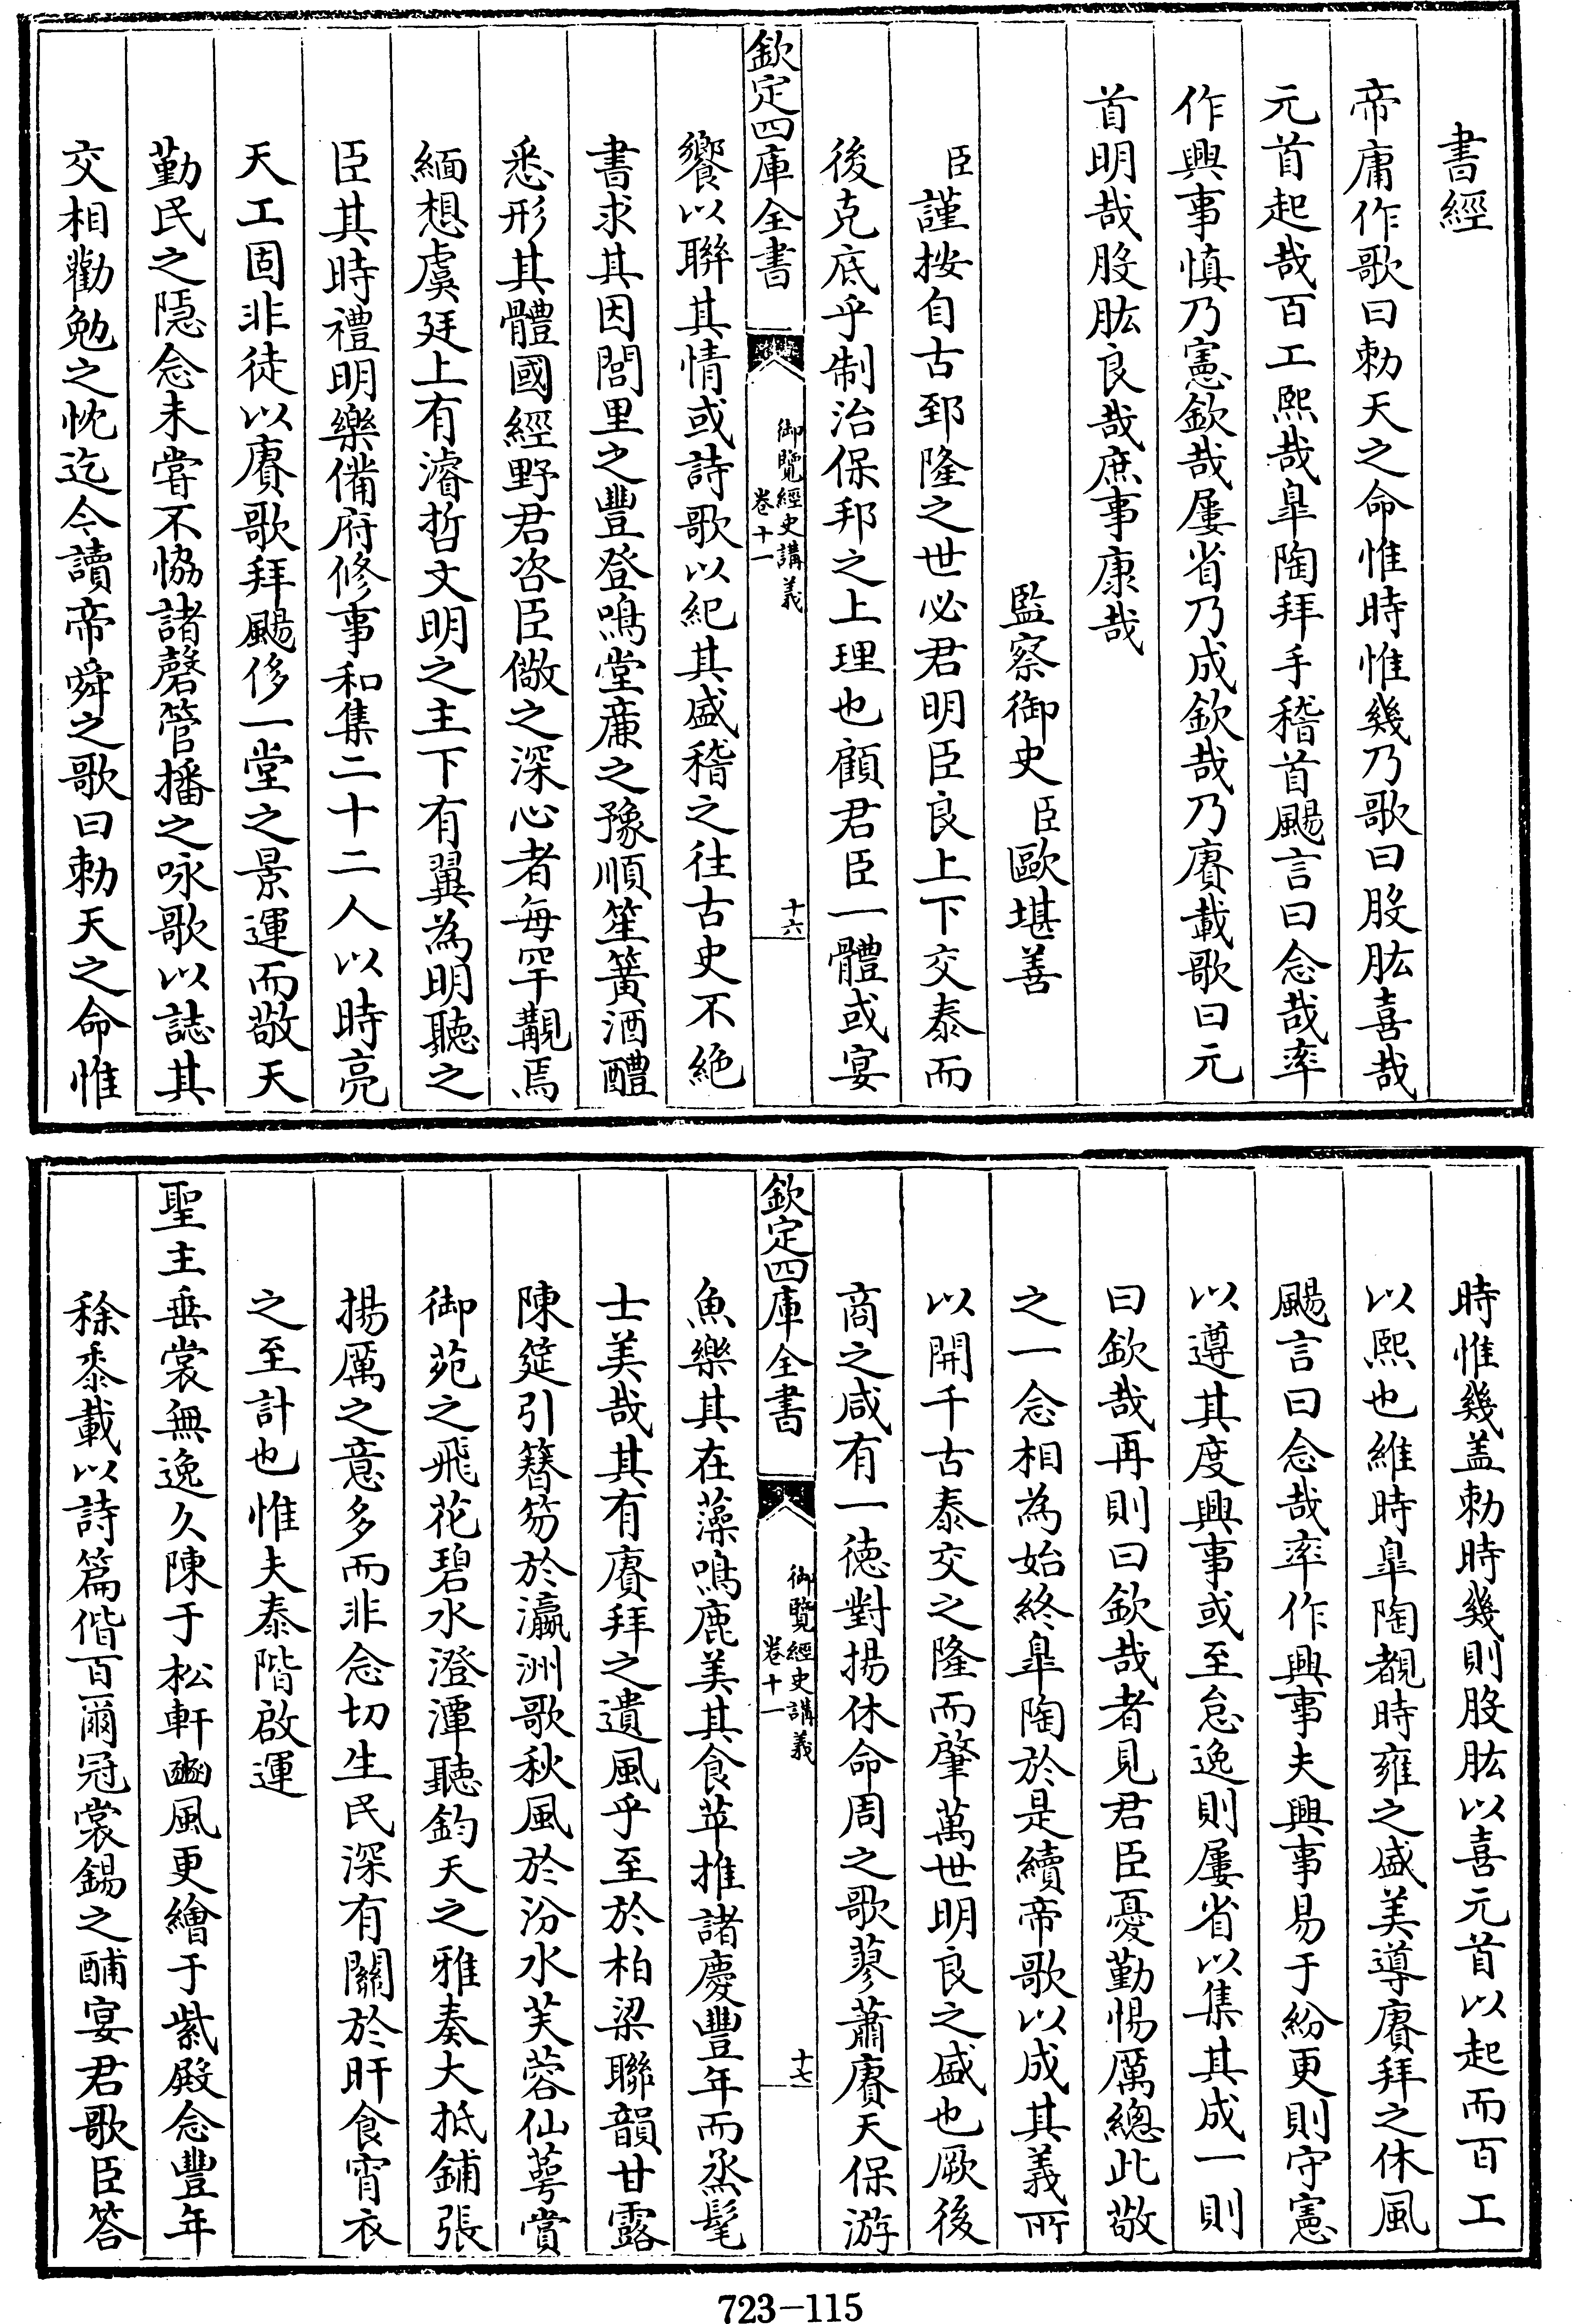 書經
帝庸作歌曰勅天之命惟時惟幾乃歌曰股肱喜哉
元首起哉百工熙哉臯陶拜手稽首颺言曰念哉率
作興事慎乃憲欽哉屢省乃成欽哉乃賡載歌曰元
首明哉股肱良哉庶事康哉
監察御史臣歐堪善
臣謹按自古郅隆之世必君明臣良上下交泰而
後克底乎制治保邦之上理也顧君臣一體或宴
欽定四庫全書
御覽經史講義
卷十一
十六
饗以聯其情或詩歌以紀其盛稽之往古史不絶
書求其因閭里之豐登鳴堂亷之豫順笙簧酒醴
悉形其體國經野君咨臣儆之深心者每罕覯焉
緬想虞廷上有濬哲文明之主下有翼為明聽之
臣其時禮明樂備府修事和集二十二人以時亮
天工固非徒以賡歌拜颺侈一堂之景運而敬天
勤民之隠念未甞不恊諸磬管播之咏歌以誌其
交相勸勉之忱迄今讀帝舜之歌曰勅天之命惟
時惟幾盖勅時幾則股肱以喜元首以起而百工
以熙也維時臯陶覩時雍之盛美導賡拜之休風
颺言曰念哉率作興事夫興事易于紛更則守憲
以遵其度興事或至怠逸則屢省以集其成一則
曰欽哉再則曰欽哉者見君臣憂勤惕厲總此敬
之一念相為始終臯陶於是續帝歌以成其義所
以開千古泰交之隆而肇萬世明良之盛也厥後
商之咸有一徳對揚休命周之歌蓼蕭賡天保游
欽定四庫全書
御覽經史講義
卷十一
十七
魚樂其在藻鳴鹿美其食苹推諸慶豐年而烝髦
士美哉其有賡拜之遺風乎至於柏梁聯韻甘露
陳筵引簪笏於瀛洲歌秋風於汾水芙蓉仙萼賞
御苑之飛花碧水澄潭聽鈞天之雅奏大抵鋪張
揚厲之意多而非念切生民深有關於旰食宵衣
之至計也惟夫泰階啟運
聖主垂裳無逸久陳于松軒豳風更繪于紫殿念豐年
稌黍載以詩篇偕百爾冠裳錫之酺宴君歌臣答
723-115